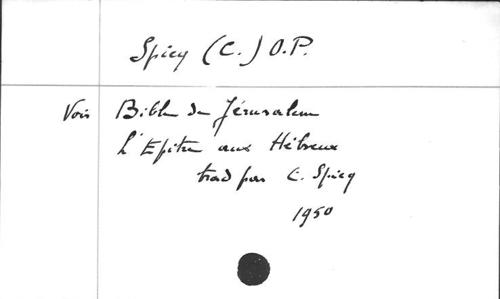 Spicq (C.) O.P.
Voir Bible de Jérusalem
L'Epitre aux Hébreux
trad par C. Spicq
1950